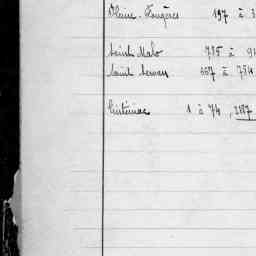 Pleine-Fougères 197 à 3
Saint Malo 755 à 91
Saint Servan 667 à 754
Tinténiac 1 à 74, 2187